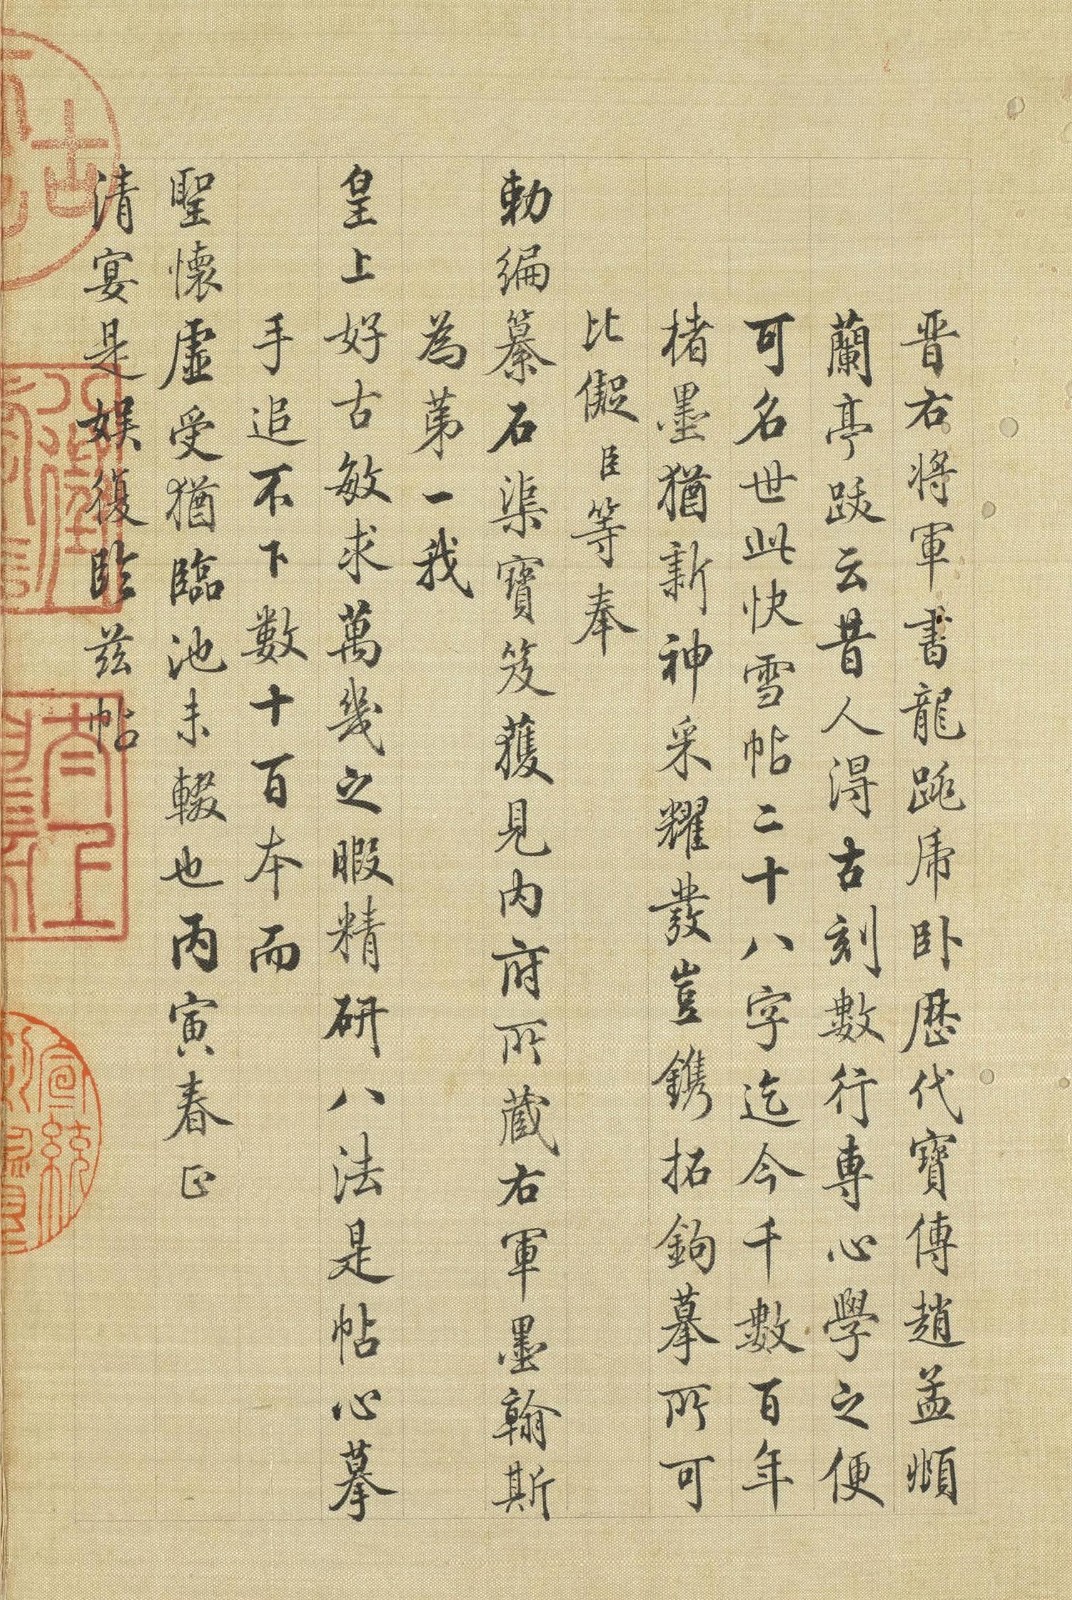 晋右将軍書龍跳乕卧歴代寶傳趙孟頫
蘭亭跋云昔人淂古刻數行専心學之便
可名世此快雪帖二十八字迄今千數百年
楮墨猶新神采耀發豈鐫拓鉤摹所可
比儗臣等奉
勅編纂石渠寶笈獲見内府所蔵右軍墨翰斯
為苐一我
皇上好古敏求萬幾之暇精研八法是帖心摹
手追不下數十百本而
聖懐虚受猶臨池未輟也丙寅春正
清宴是娱復臨兹帖